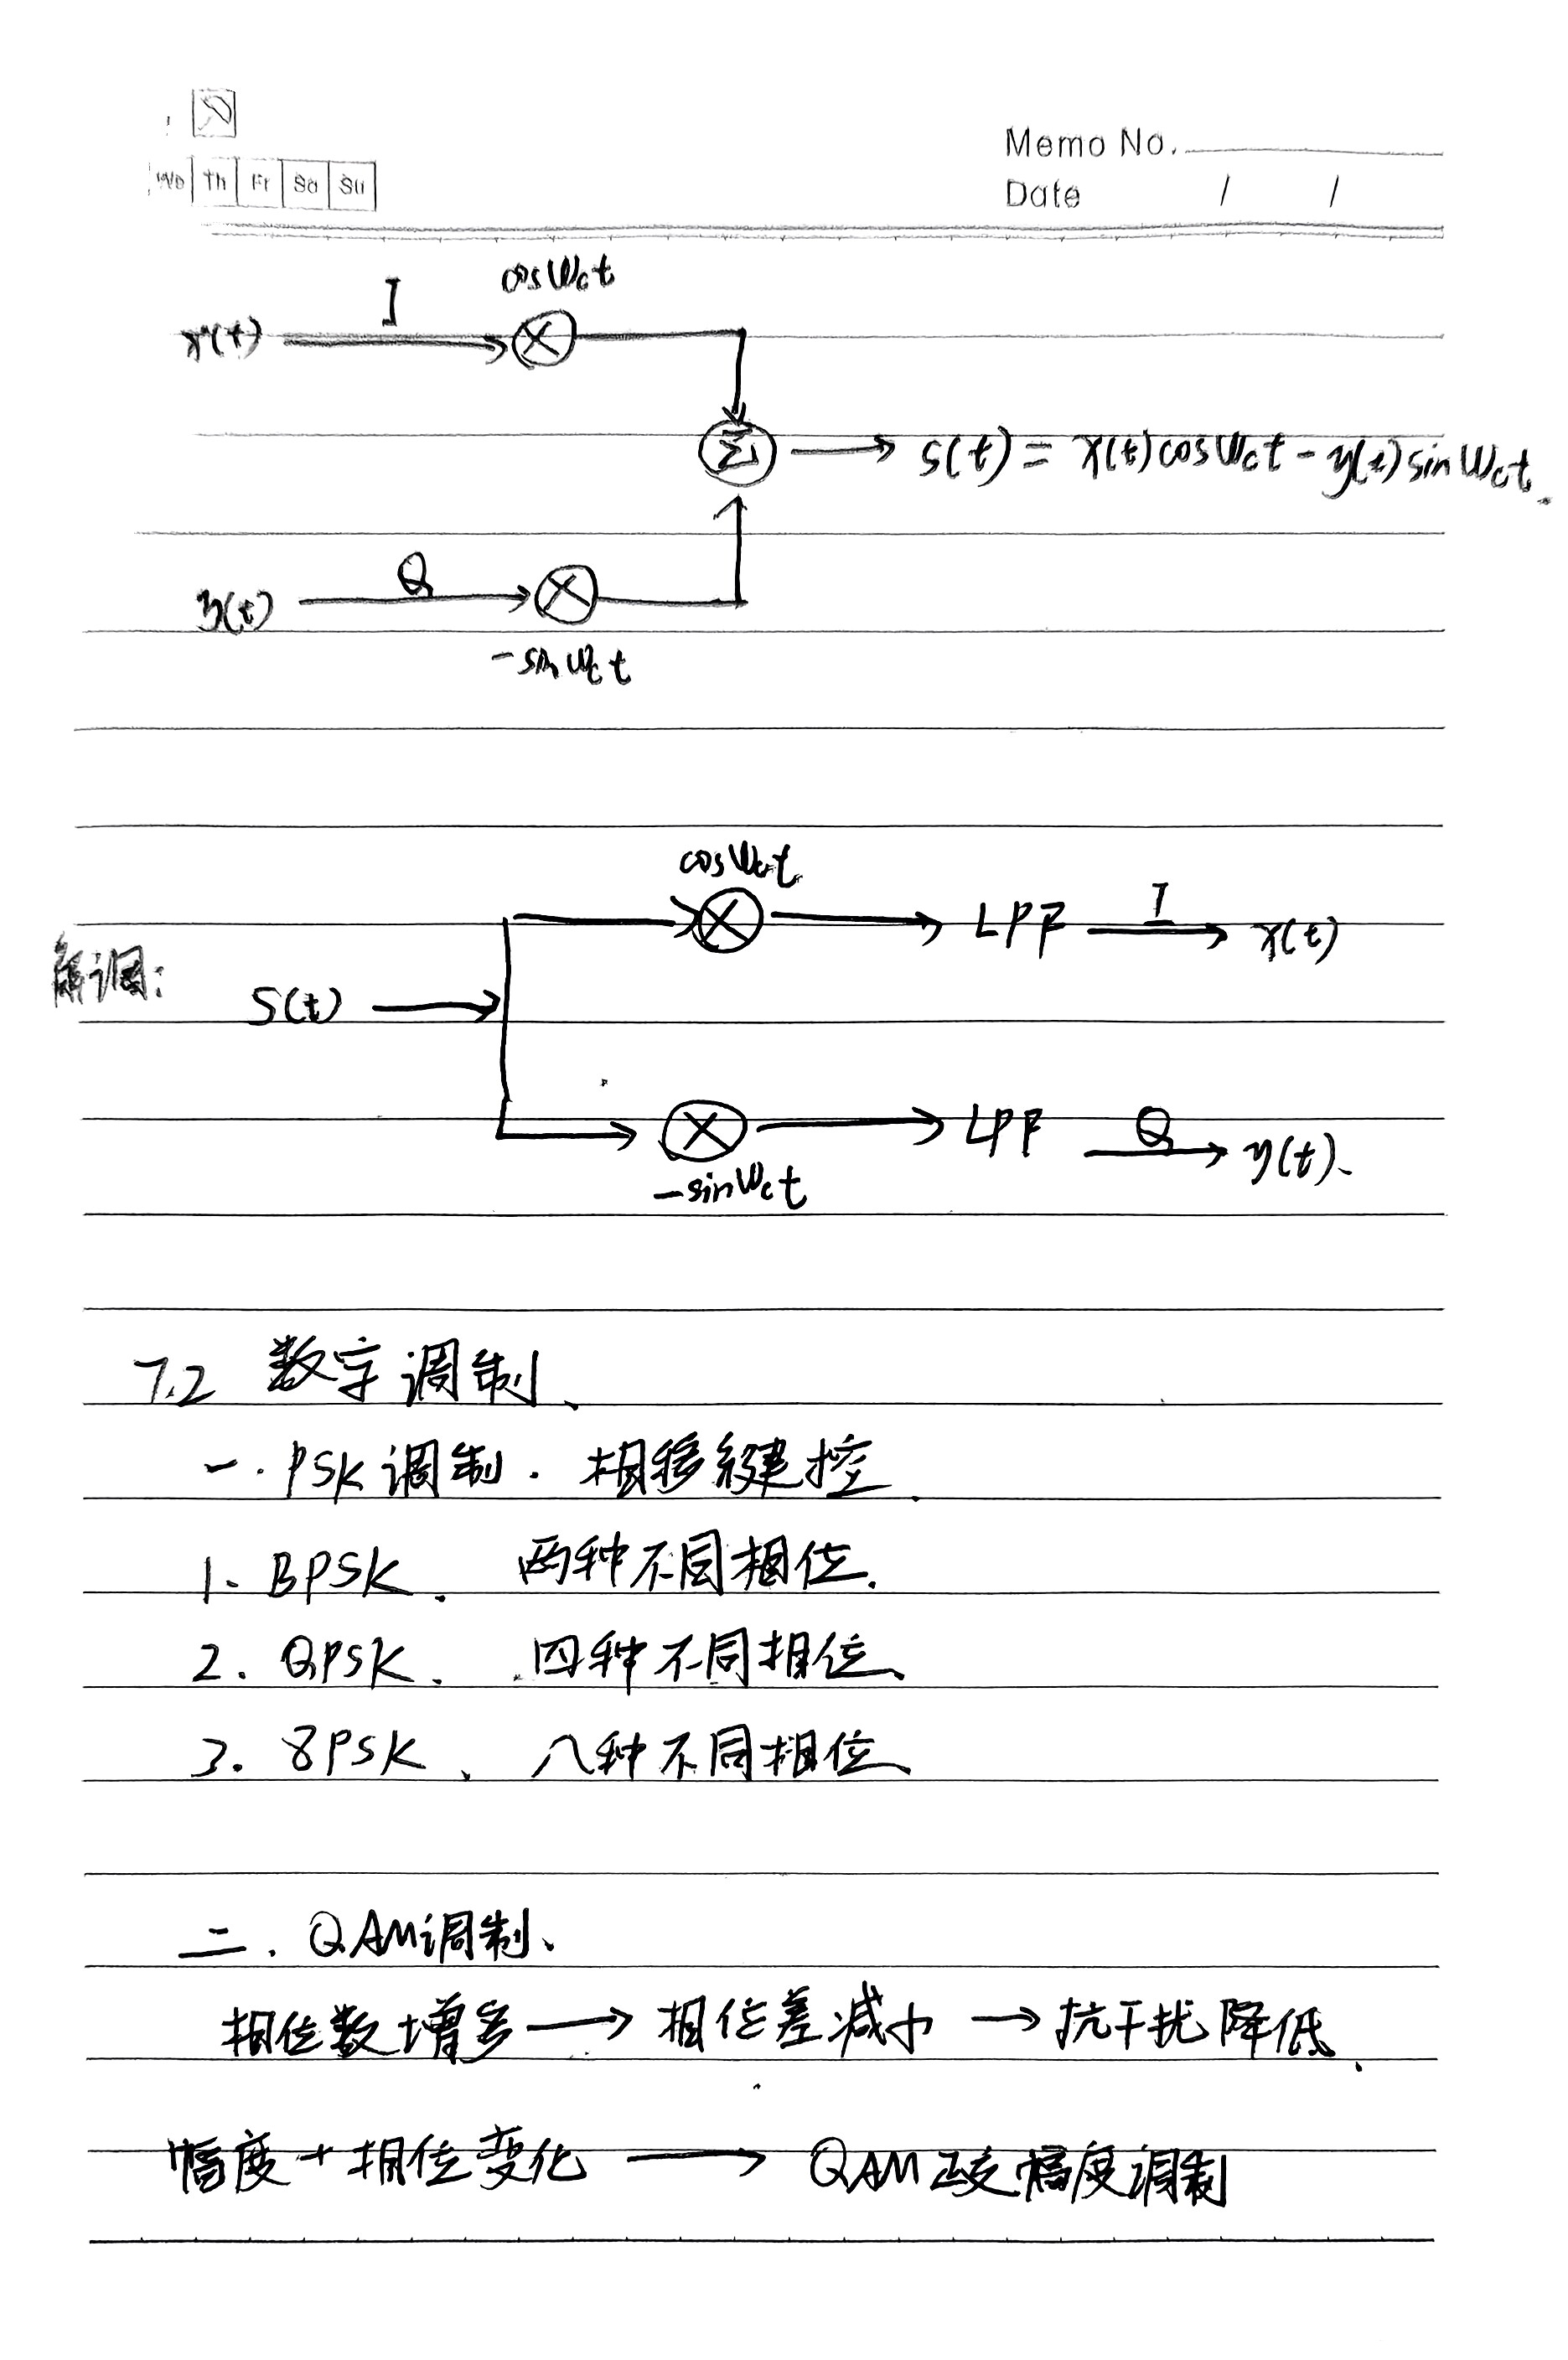 Memo No.
We Th Fr Sa Su
Date / /
cosωct
x(t) I
Σ s(t) = x(t)cosωct - y(t)sinωct.
y(t) Q
-sinωct
cosωct
LPF I x(t)
解调:
S(t)
LPF Q y(t).
-sinωct
7.2 数字调制.
一. PSK调制. 相移键控.
1. BPSK. 两种不同相位.
2. QPSK. 四种不同相位.
3. 8PSK. 八种不同相位.
二. QAM调制.
相位数增多 → 相位差减小 → 抗干扰降低.
幅度+相位变化 → QAM正交幅度调制